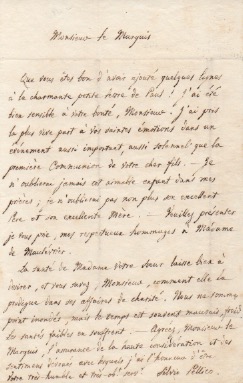 Monsieur le Marquis
Que vous êtes bon d'avoir ajouté quelques lignes
à la charmante petite lettre de Paul ! J'ai été
bien sensible à votre bonté, Monsieur. J'ai pris
la plus vive part à vos saintes émotions dans un
événement aussi important, aussi solennel que la
première Communion de votre cher fils. — Je
n'oublierai jamais cet aimable enfant dans mes
prières ; je n'oublierai pas non plus son excellent
Père et son excellente Mère. — Veuillez présenter,
je vous prie, mes respectueux hommages à Madame
de
La santé de Madame votre Sœur laisse bien à
désirer, et vous savez, Monsieur, comment elle la
prodigue dans ses affaires de charité. Nous ne sommes
point inondés, mais le temps est souvent mauvais, froid
les santés faibles en souffrent. — Agréez, Monsieur le
Marquis, l'assurance de la haute considération et des
sentiments dévoués avec lesquels j'ai l'honneur d'être
Votre très humble et très ob. serv. Silvio Pellico